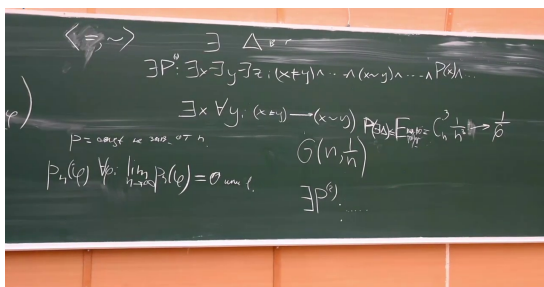 <=, ~>
∃ Δ в г
∃P⁽¹⁾: ∃x ∃y ∃z: (x≠y)∧ … ∧(x~y)∧ … ∧P(x)∧…
φ)
∃x ∀y: (x≠y) → (x~y)
P(∃Δ) ≤ E = C_n^3 1/n^3 → 1/6
p = const не зав. от n.
G(n, 1/n)
P_n(φ) ∀φ: lim n→∞ P_n(φ) = 0 или 1.
∃P⁽²⁾: .....